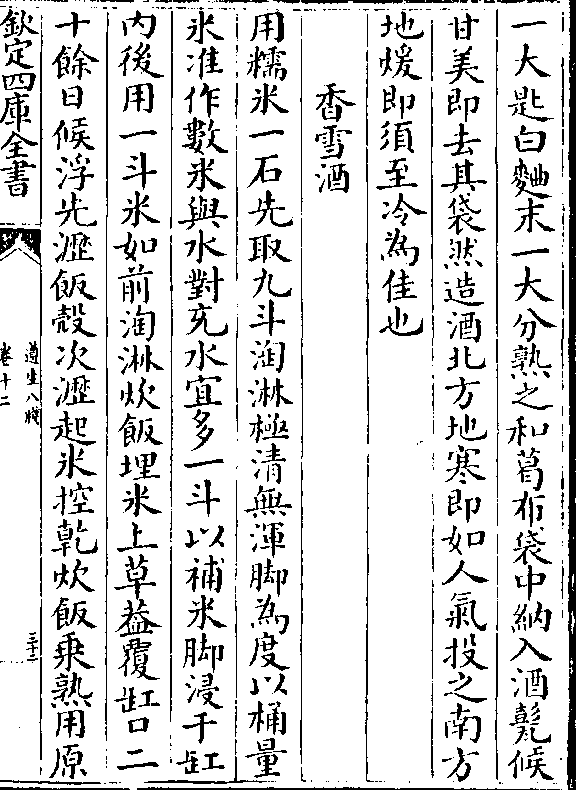 一大匙白麯末一大分熟之和葛布袋中納入酒甏候
甘美即去其袋然造酒北方地寒即如人氣投之南方
地煖即須至冷為佳也
香雪酒
用糯米一石先取九斗淘淋極清無渾脚為度以桶量
米准作數米與水對充水宜多一斗以補米脚浸于缸
内後用一斗米如前淘淋炊飯埋米上草葢覆缸口二
十餘日候浮先瀝飯殼次瀝起米控乾炊飯乗熟用原
欽定四庫全書
遵生八牋
卷十二
三十二